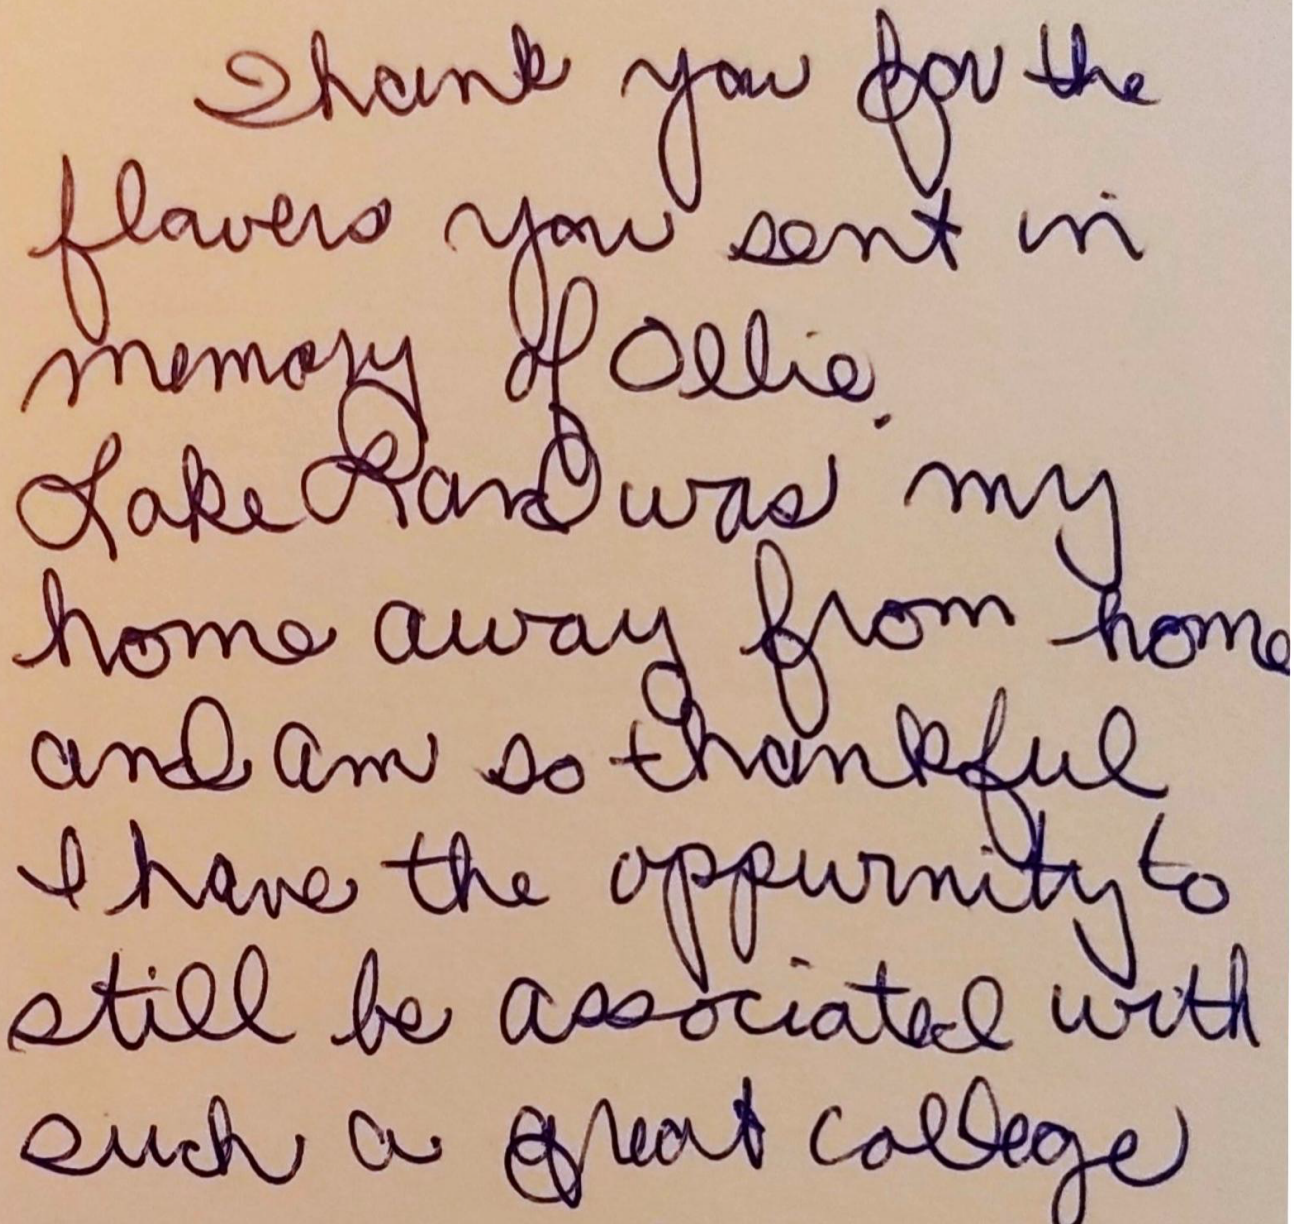 Thank you for the
flowers you sent in
memory of Ollie.
Lake Land was my
home away from home
and am so thankful
I have the oppurnity to
still be associated with
such a great college